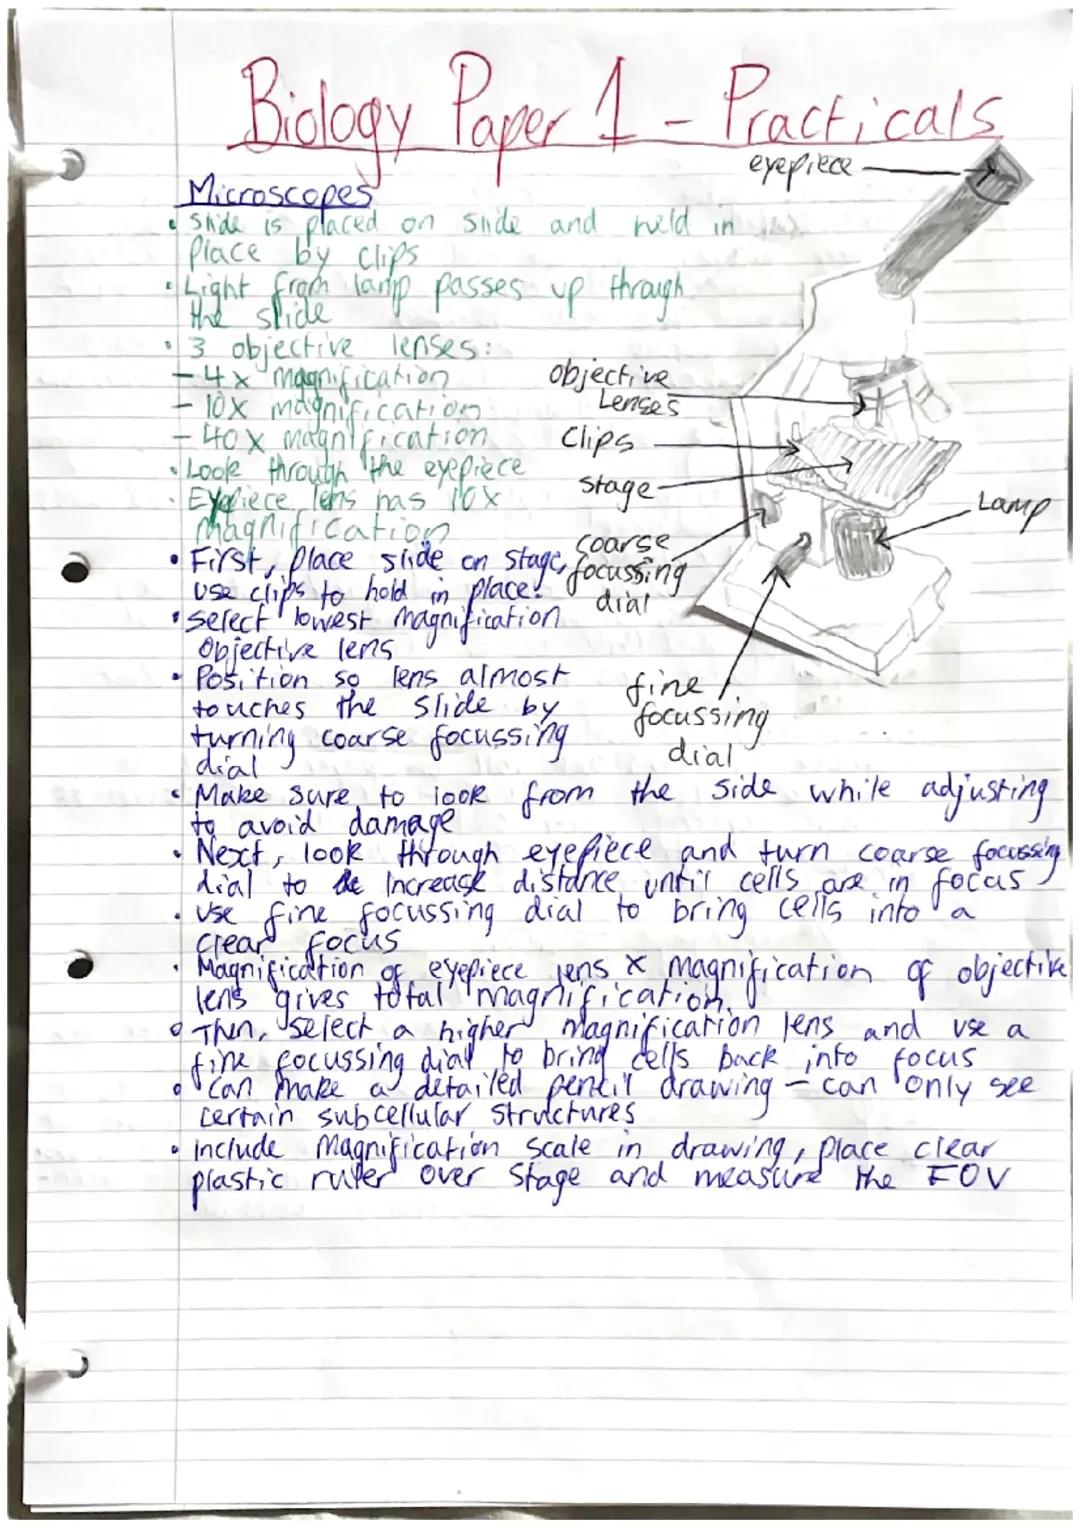 Biology Paper 1 - Practicals
eyepiece
Microscopes
• Slide is placed on slide and held in
place by clips
• Light from lamp passes up through
the slide
• 3 objective lenses:
- 4x magnification
- 10x magnification
- 40x magnification
• Look through the eyepiece
• Eyepiece lens has 10x
magnification
objective
Lenses
Clips
stage
Lamp
coarse
focussing
dial
fine
focussing
dial
• First, place slide on stage,
use clips to hold in place.
• Select lowest magnification
Objective lens
• Position so lens almost
touches the slide by
turning coarse focussing
dial
• Make sure to look from the side while adjusting
to avoid damage
• Next, look through eyepiece and turn coarse focussing
dial to increase distance until cells are in focus
• Use fine focussing dial to bring cells into a
clear focus
• Magnification of eyepiece lens x magnification of objective
lens gives total magnification.
• Then, select a higher magnification lens and use a
fine focussing dial to bring cells back into focus
• Can make a detailed pencil drawing - can only see
certain subcellular structures
• Include magnification scale in drawing, place clear
plastic ruler over stage and measure the FOV